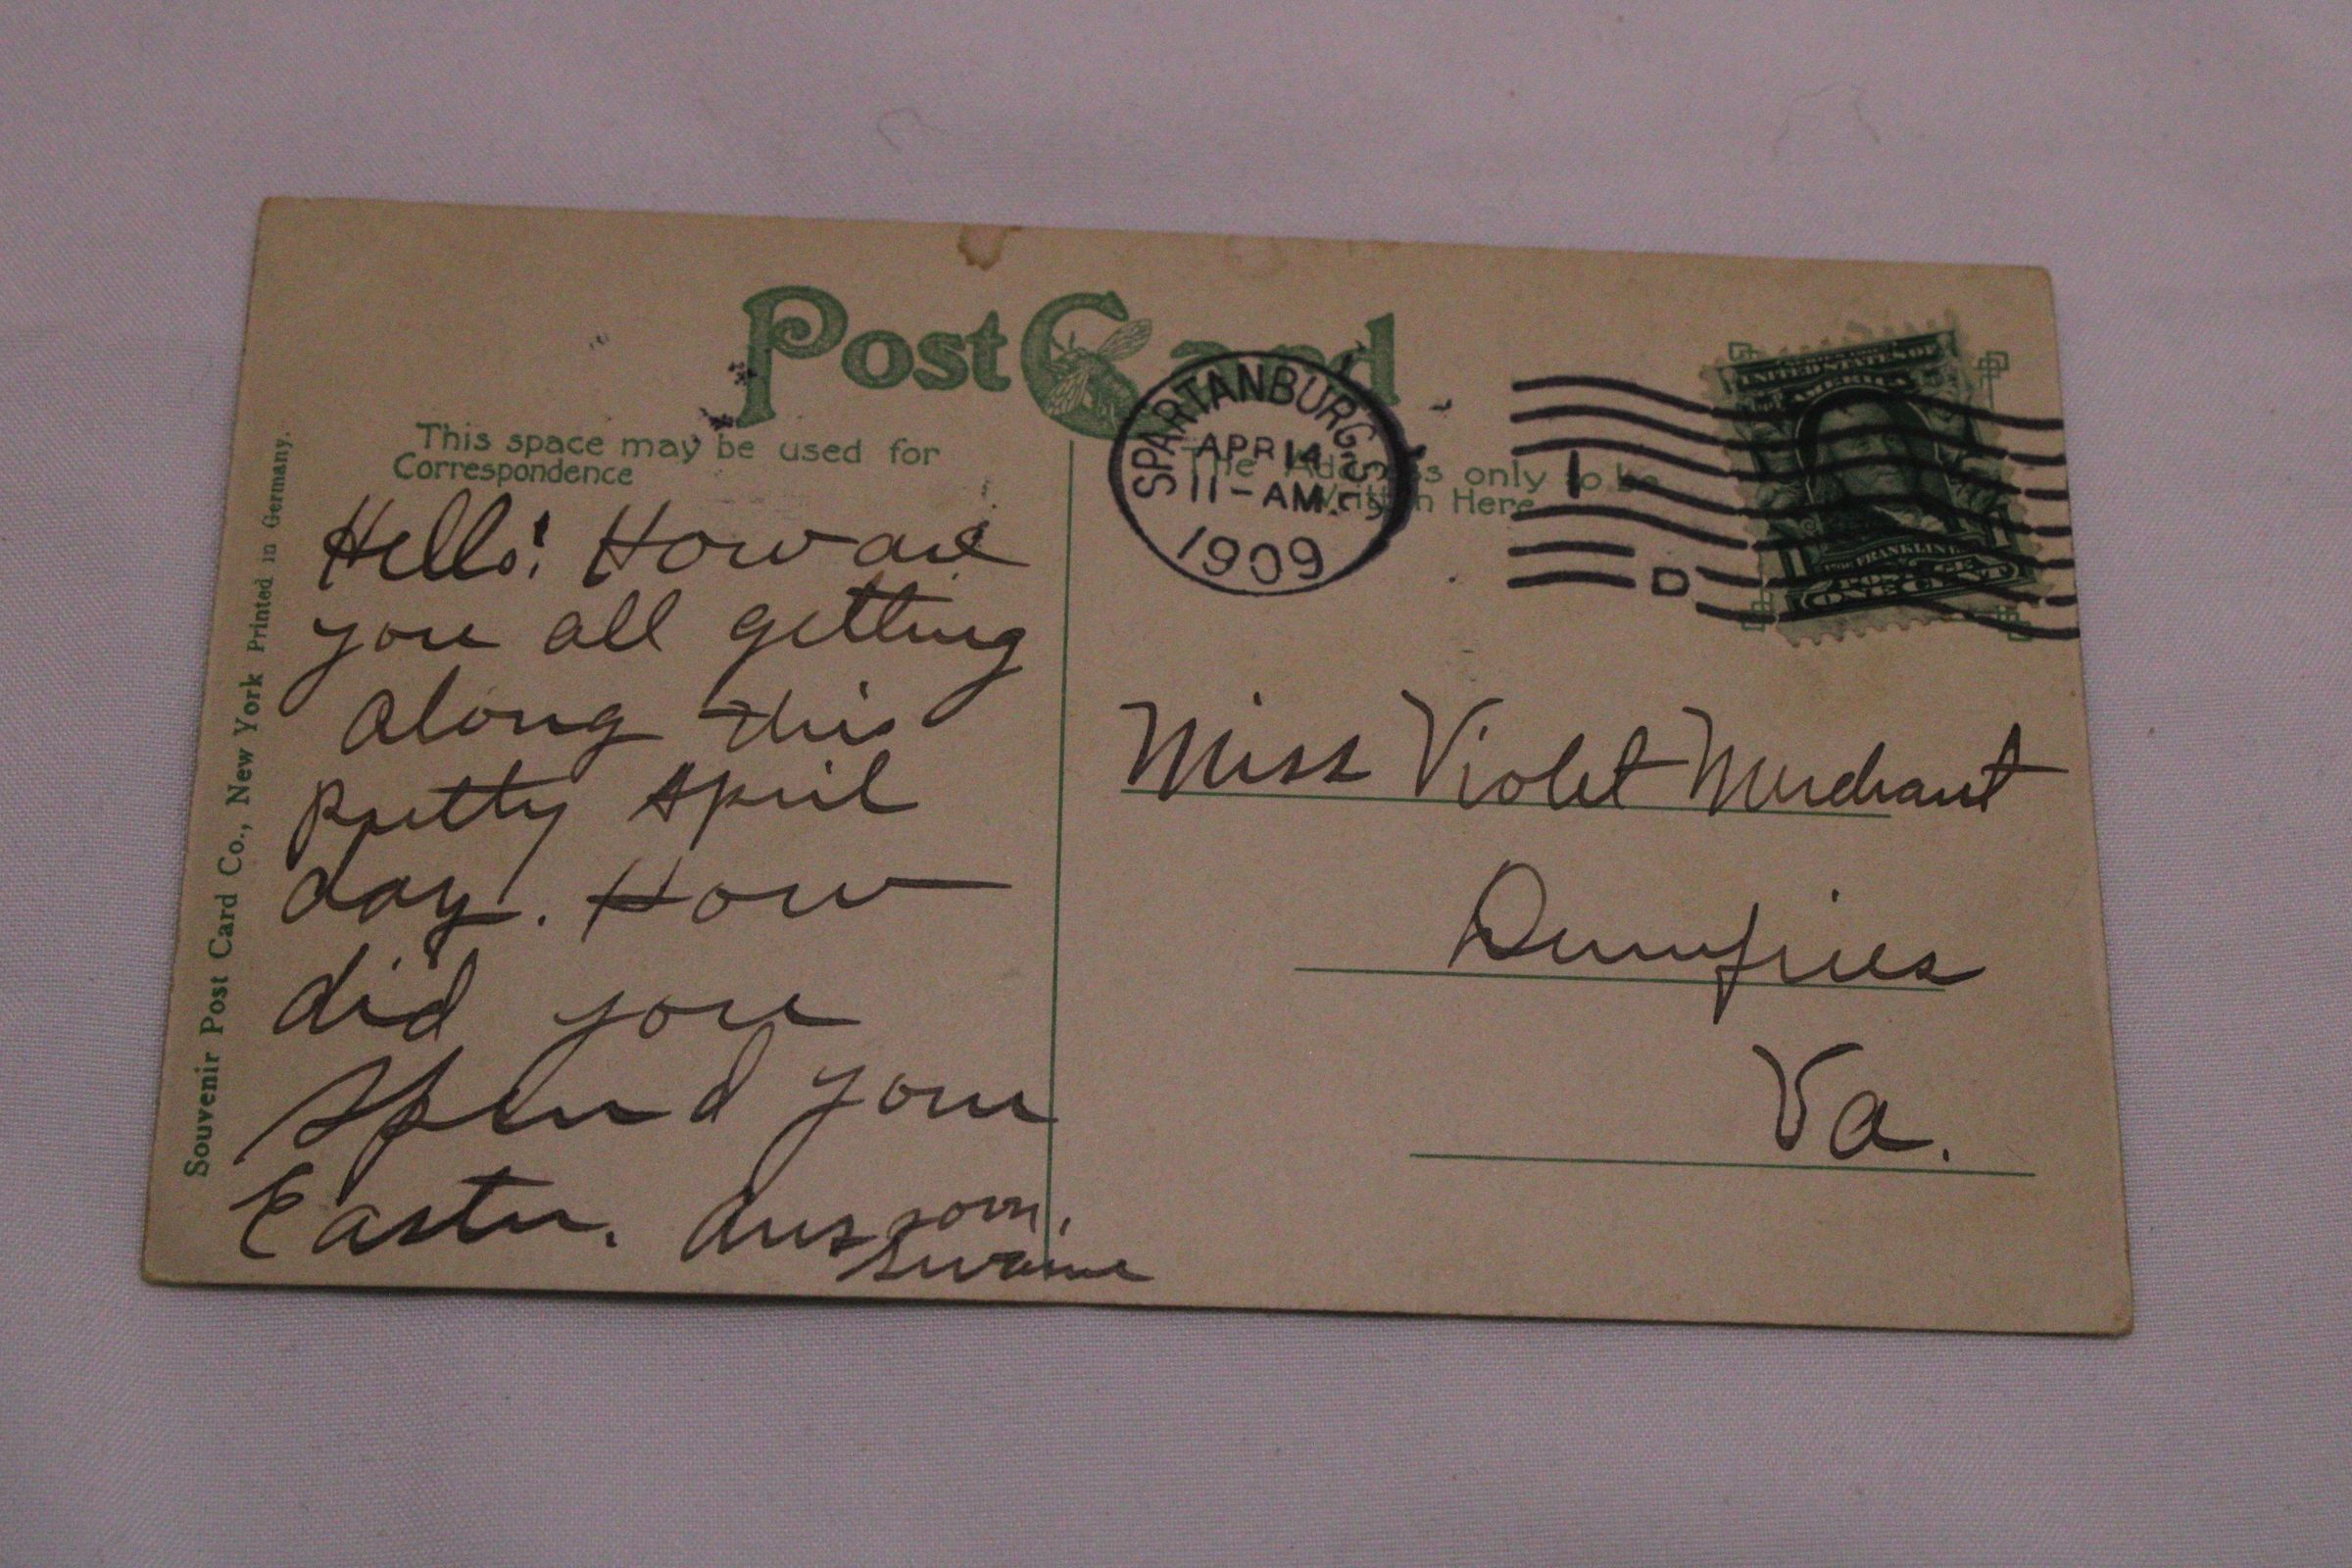 Post Card
This space may be used for
Correspondence
The Address only to be
Written Here
SPARTANBURG, S.C.
APR 14
11-AM.
1909
1
D
UNITED STATES OF
AMERICA
FRANKLIN
POSTAGE
ONE CENT
Hello! How are
you all getting
along this
pretty April
day. How
did you
spend your
Easter. Ans soon.
Swaine
Miss Violet Merchant
Dumfries
Va.
Souvenir Post Card Co., New York Printed in Germany.